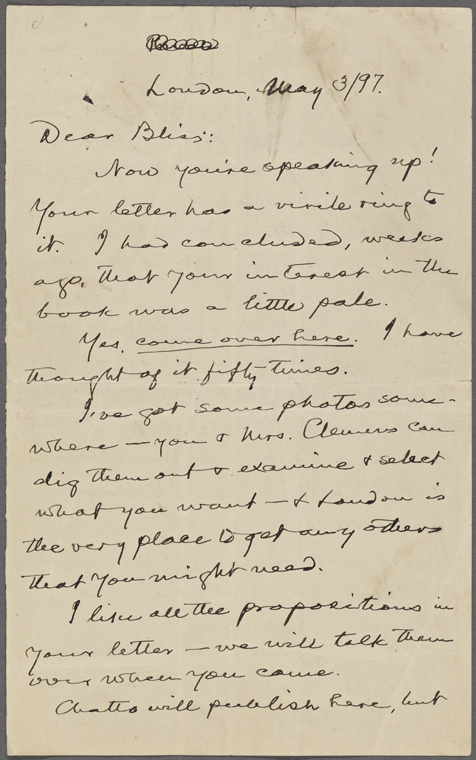 London, May 3/97.
Dear Bliss:
Now you're speaking up!
Your letter has a virile ring to
it. I had concluded, weeks
ago, that your interest in the
book was a little pale.
Yes, come over here. I have
thought of it fifty times.
I've got some photos some-
where — you & Mrs. Clemens can
dig them out & examine & select
what you want — & London is
the very place to get any others
that you might need.
I like all the propositions in
your letter — we will talk them
over when you come.
Chatto will publish here, but